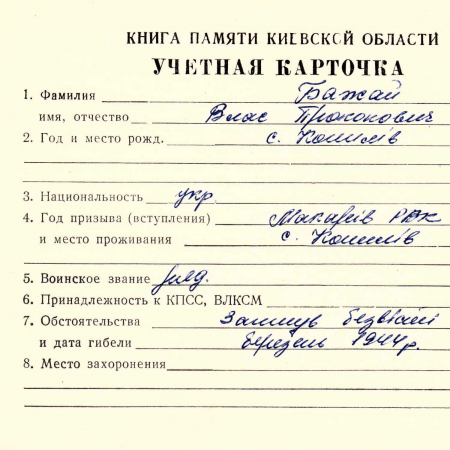 КНИГА ПАМЯТИ КИЕВСКОЙ ОБЛАСТИ
УЧЕТНАЯ КАРТОЧКА
1. Фамилия Бажай
имя, отчество Влас Прокопович
2. Год и место рожд. с. Копилів
3. Национальность укр.
4. Год призыва (вступления) Макарів РВК
и место проживания с. Копилів
5. Воинское звание
6. Принадлежность к КПСС, ВЛКСМ
7. Обстоятельства Загинув безвісті
и дата гибели березень 1944 р.
8. Место захоронения